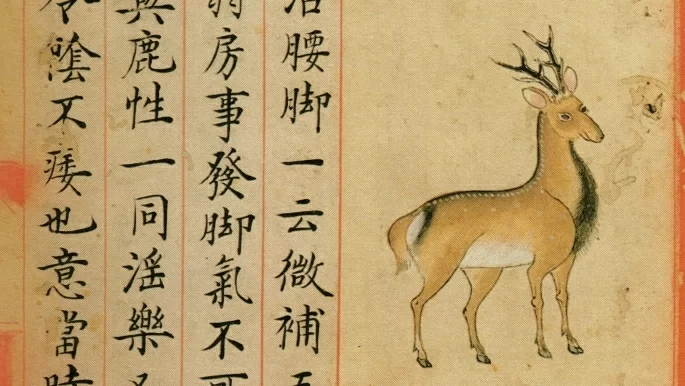 治腰脚一云微補五
弱房事發脚氣不可
與鹿性一同滛樂
令陰不痿也意當時